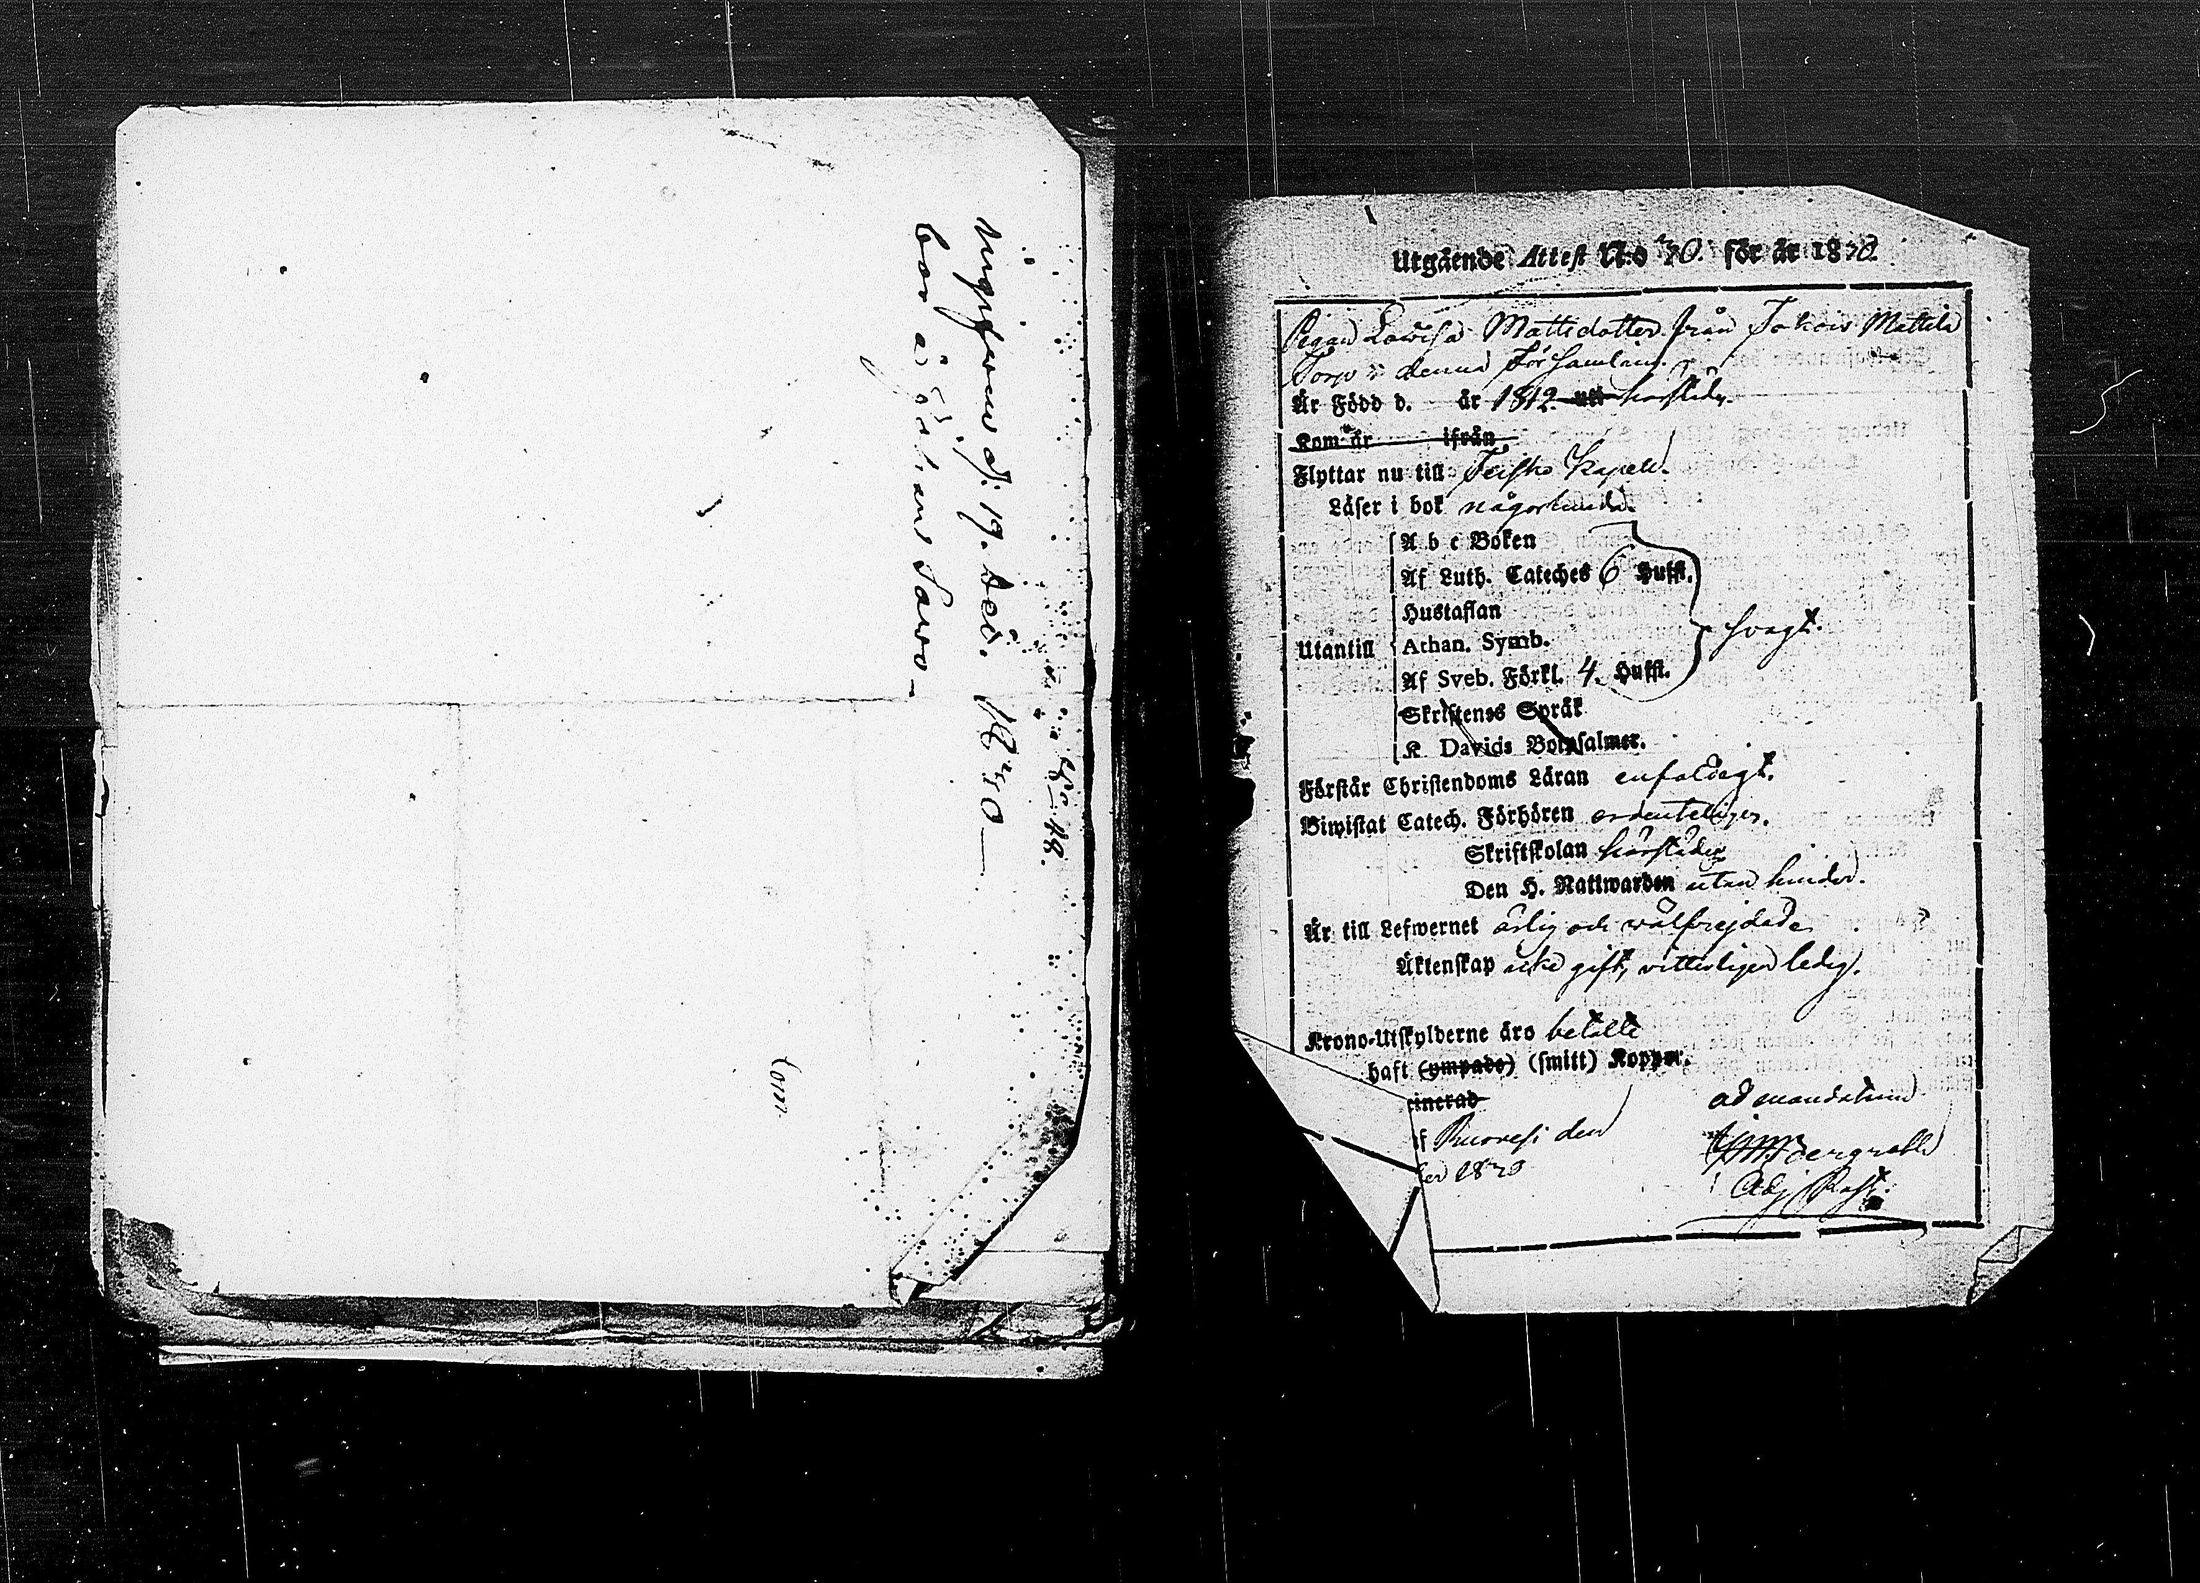 uppgifwen d: 19. Dec. 1830 —
bor å Juhans Sawo —
Utgående Attest N:o 70. för år 1830.
Pigan Lowisa Mattsdotter från Jokois Mattila
Torp i denna Församling.
Är Född d. år 1812 uti härstädes.
Kom år ifrån
Flyttar nu till Teisko Kapell.
Läser i bok någorlunda.
A b c Boken
Af Luth. Cateches 6 Huffst.
Hustaflan
Utantill Athan. Symb. svagt.
Af Sveb. Förkl. 4. Huffst.
Skriftenes Språk
K Davids Botpsalmer.
Förstår Christendoms Läran enfaldigt.
Biwistat Catech. Förhören ordenteligen.
Skriftskolan härstädes
Den H. Nattwarden utan hinder.
Är till Lefwernet ärlig och wälfrejdad.
Äktenskap icke gift, vitterligen ledig.
Krono-Utskylderne äro betalte
haft (ympade) (smitt) Koppor.
cinerad
f Ruovesi den ad mandatum
er 1830 Bergroth
Adj. Past.